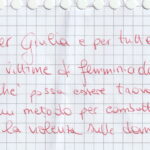 er Giulia e per tutte
vittime di femminicidi
che possa essere trova
un metodo per combatte
la violenza sulle don